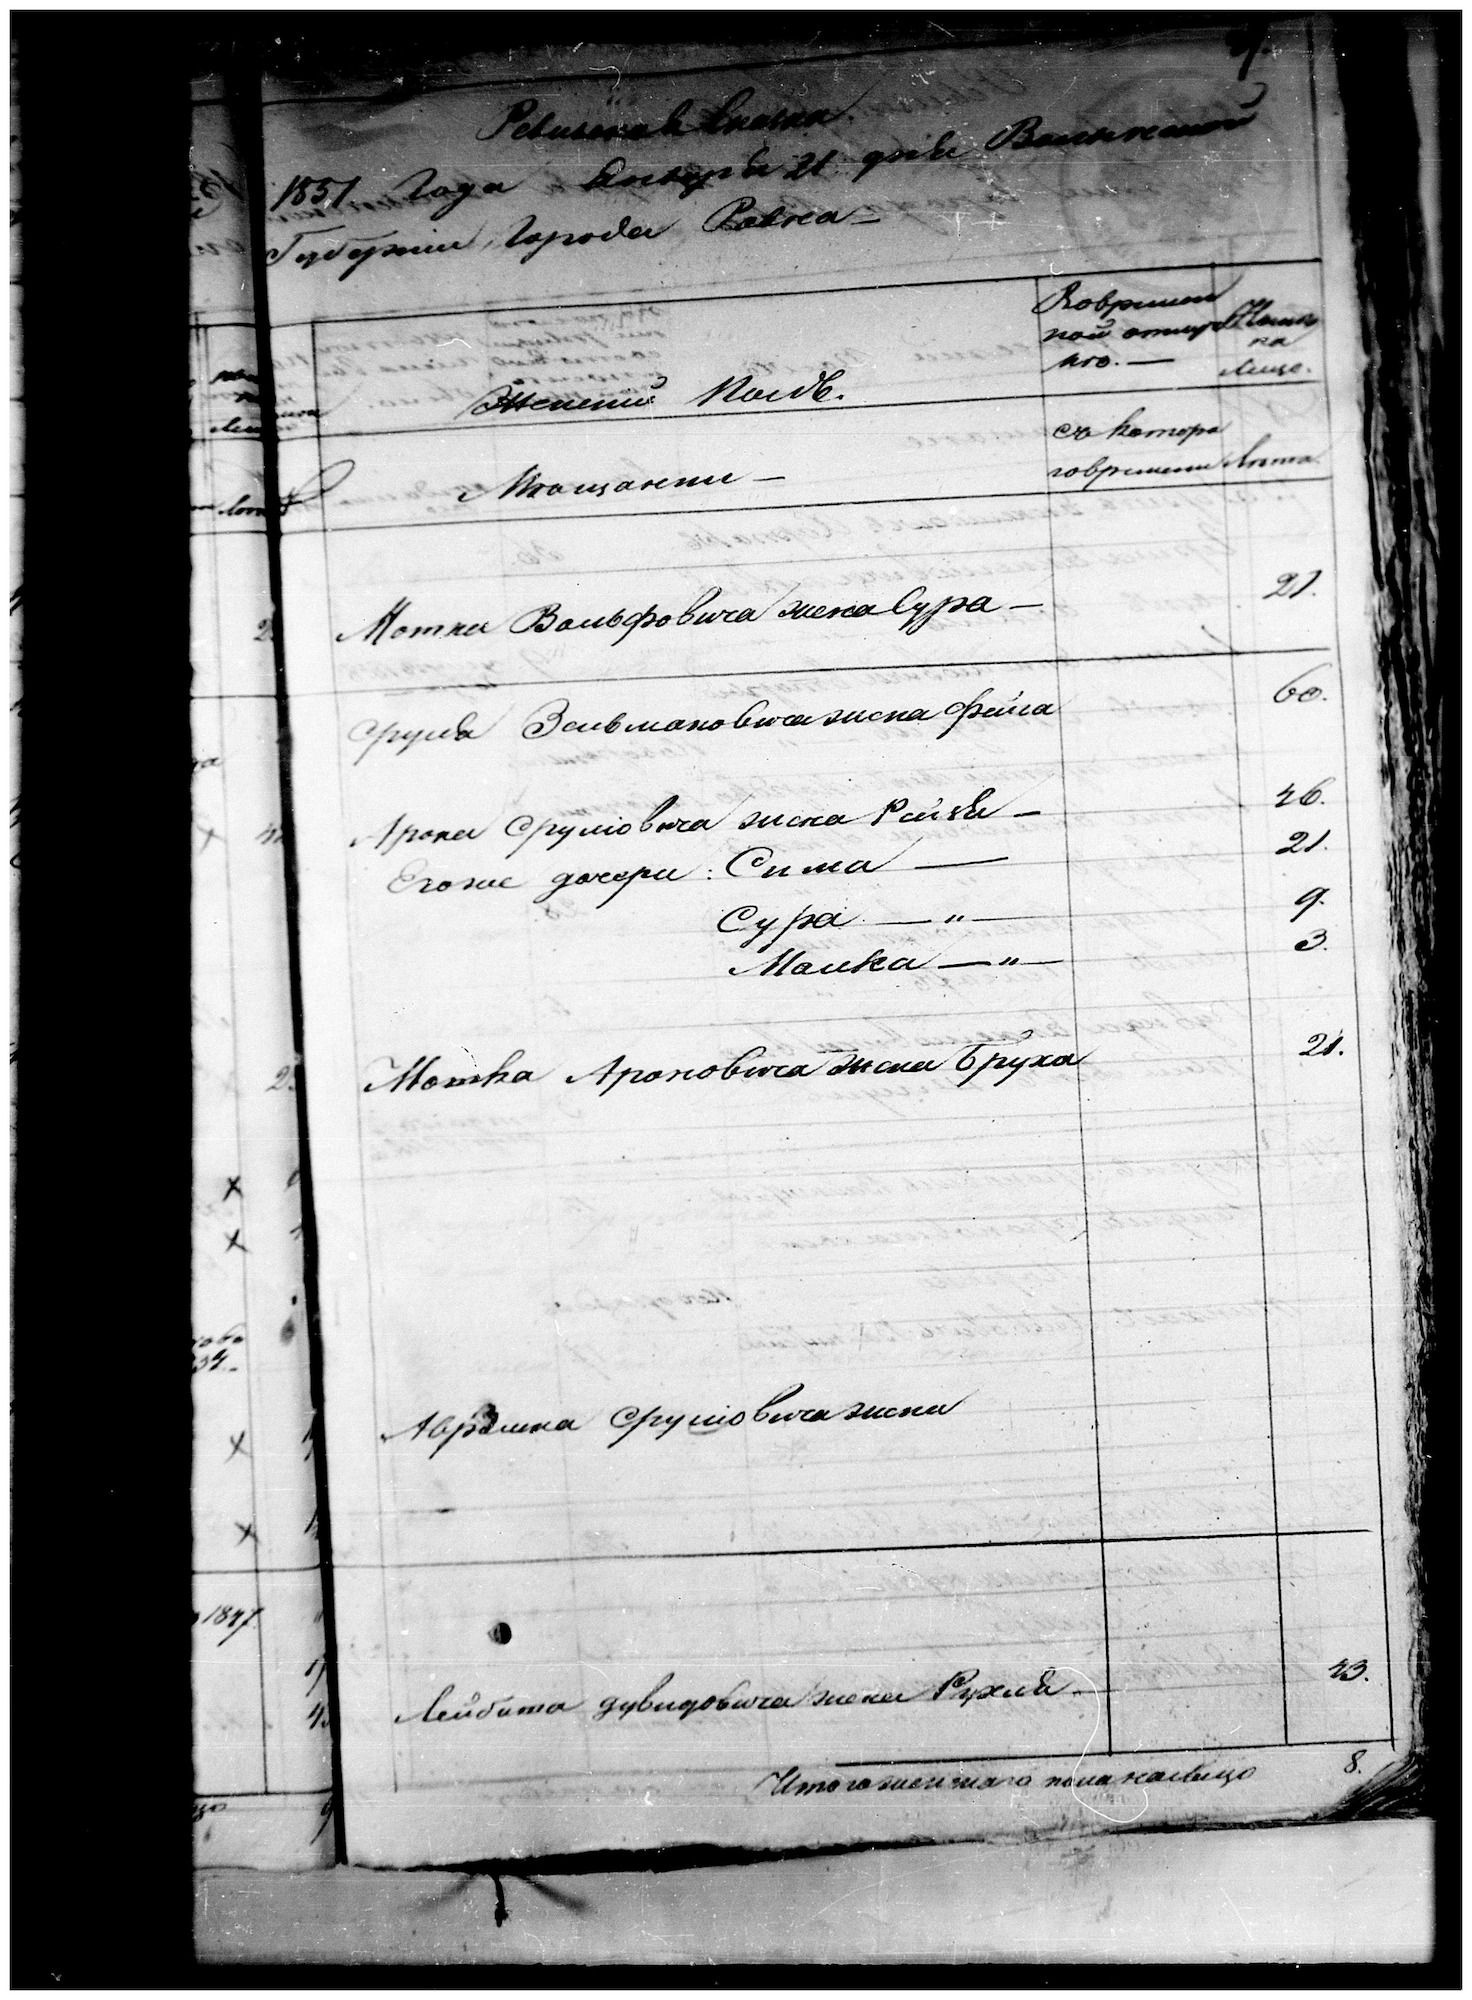 Ревизская сказка.
1851 Года Января 21 дня Волынской
Губернии, Города Ровна —
Женский Полъ.
Во временной отлучке. —
Ныне на лицо.
Мещанки —
съ которого времени
Лета.
Мотки Вольфовича жена Сура — 21.
Сруля Зельмановича жена Фейга 60.
Арона Срулиовича жена Рейзя — 46.
Его же дочери: Сима — 21.
Сура — " — 9.
Малка — " — 3.
Мотка Ароновича жена Бруха 21.
Аврамка Срулиовича жена
Лейбиша Дувидовича жена Рухля — 43.
Итого женскаго пола на лицо 8.
1847